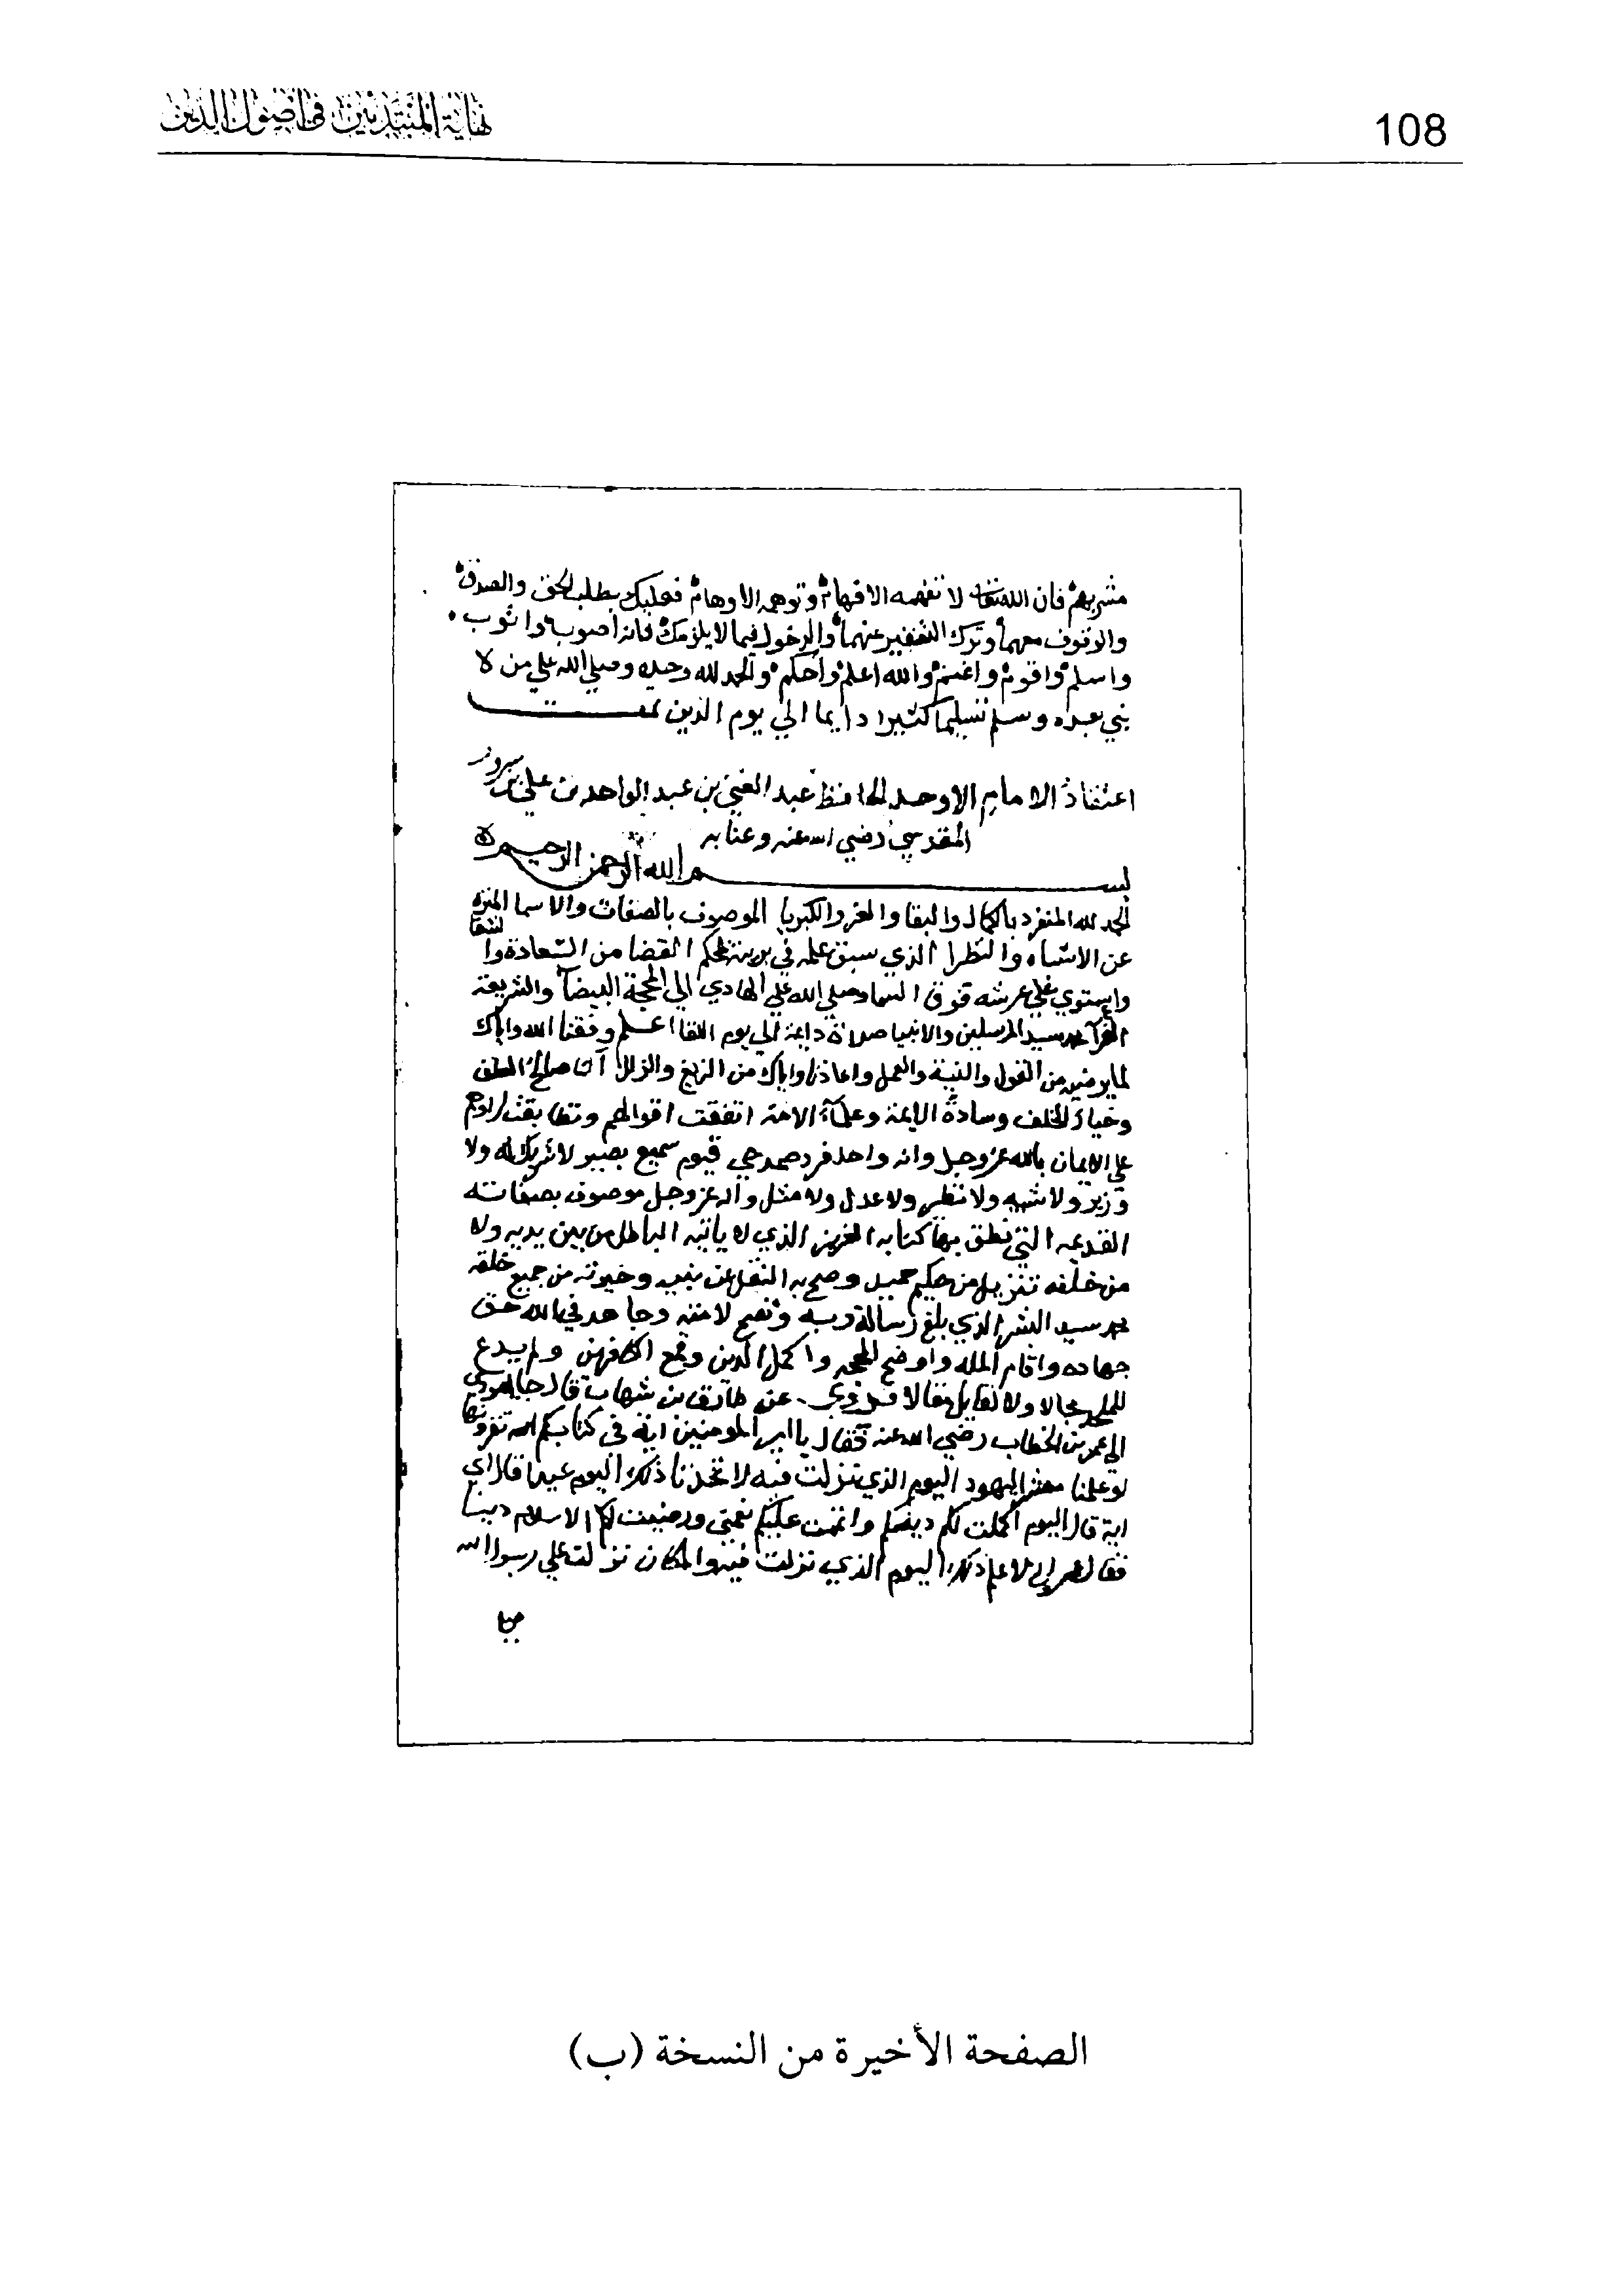 108
نهاية المبتدئين في أصول الدين
فان الله تعالى لا تفهمه الافهام وتوهمه الاوهام فعليك بطلب الحق والصدق
والوقوف معهما وترك التنفير عنهما والدخول فيما لا يلزمك فانه اصوب واثوب
واسلم واقوم واغنم والله اعلم واحكم والحمد لله وحده وصلى الله على من لا
نبي بعده وسلم تسليما كثيرا دايما الي يوم الدين تمت
اعتقاد الامام الاوحد الحافظ عبد الغني بن عبد الواحد بن علي بن سرور
المقدسي رضي الله عنه وعنا به
بسم الله الرحمن الرحيم
الحمد لله المنفرد بالكمال والبقا والعز والكبريا الموصوف بالصفات والاسما المنزه
عن الاشباه والنظرا الذي سبق علمه في بريته بمحكم القضا من السعادة والشقا
واستوي علي عرشه فوق السما وصلي الله علي الهادي الي المحجة البيضآ والشريعة
الغرآ محمد سيد المرسلين والانبيا صلاة دايمة الي يوم اللقا اعلم وفقنا الله واياك
لما يرضيه من القول والنية والعمل واعاذنا واياك من الزيغ والزلل ان صالح السلف
وخيار الخلف وسادة الايمة وعلمآء الامة اتفقت اقوالهم وتطابقت اراوهم
علي الايمان بالله عز وجل وانه واحد فرد صمد حي قيوم سميع بصير لا شريك له ولا
وزير ولا شبيه ولا نظير ولا عدل ولا مثل وانه عز وجل موصوف بصفاته
القديمه التي نطق بها كتابه العزيز الذي لا ياتيه الباطل من بين يديه ولا
من خلفه تنزيل من حكيم حميد وصح به النقل عن نبيه وخيرته من جميع خلقه
محمد سيد البشر الذي بلغ رسالة ربه ونصح لامته وجاهد في الله حق
جهاده واقام المله واوضح المحجه واكمل الدين وقمع الكافرين ولم يدع
للملحد مجالا ولا لقايل مقالا فروي عن طارق بن شهاب قال جا يهودي
الي عمر بن الخطاب رضي الله عنه فقال يا امير المومنين اية في كتابكم تقرونها
لو علمنا معشر اليهود اليوم الذي نزلت فيه لاتخذنا ذلك اليوم عيدا قال اي
اية قال اليوم اكملت لكم دينكم واتممت عليكم نعمتي ورضيت لكم الاسلام دينا
فقال عمر اني لاعلم ذلك اليوم الذي نزلت فيه والمكان نزلت علي رسول الله
الصفحة الأخيرة من النسخة (ب)